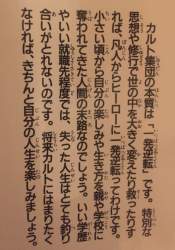 カルト集団の本質は「一発逆転」です。特別な
思想や修行で世の中を大きく変えたり救ったりす
れば、凡人からヒーローに一発逆転ってわけです。
小さい頃から自分の楽しみや生き方を親や学校に
奪われてきた人間の末路なのでしょう。いい学歴
やいい就職先程度では、失った人生はとても釣り
合いがとれないのです。将来カルトにはまりたく
なければ、きちんと自分の人生を楽しみましょう。